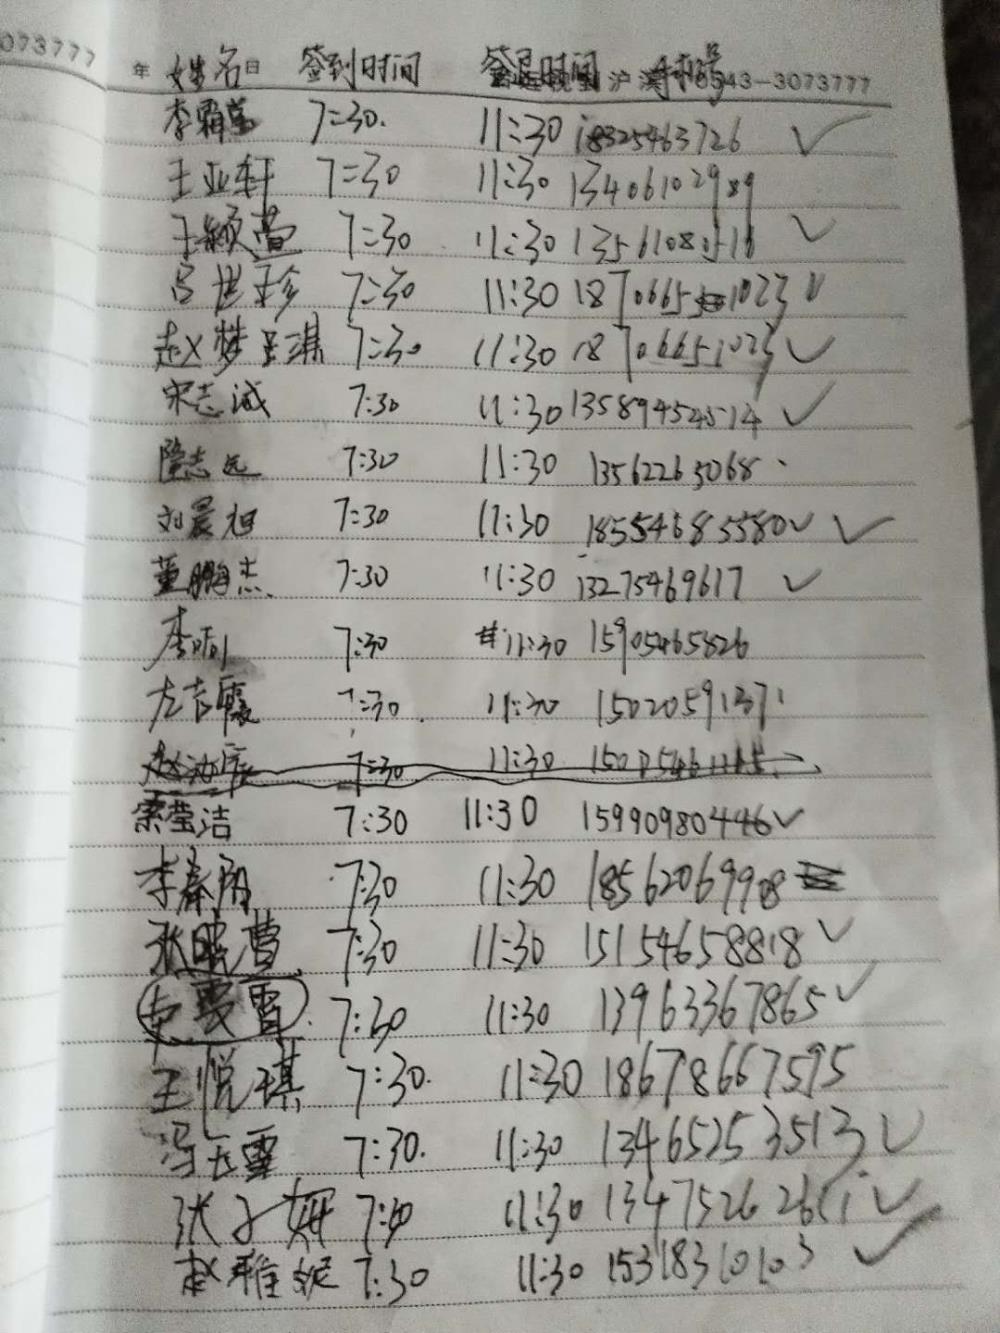 073777
年 姓名 日 签到时间 签退时间 沪 手机号 0543-3073777
李霸 7:30. 11:30 18325463726
王亚轩 7:30 11:30 13406102989
王颖萱 7:30 11:30
吕世珍 7:30 11:30 1023
赵梦 琪 7:30 11:30 18706651023
宋志诚 7:30 11:30 13589454514
隆志远 7:30 11:30 13562263068
刘晨旭 7:30 11:30 18554685580
董鹏杰 7:30 11:30 13275469617
李 7:30 11:30 15905465826
左吉霞 7:30 11:30 15020591371
7:30 11:30
索莹洁 7:30 11:30 15990980446
李 7:30 11:30 18562069908
张 7:30 11:30 15154658818
雯雪 7:30 11:30 13963367865
王悦琪 7:30. 11:30 18678667595
冯玉雪 7:30. 11:30 13465253513
张子妍 11:30
赵雅妮 7:30 11:30 15318310103